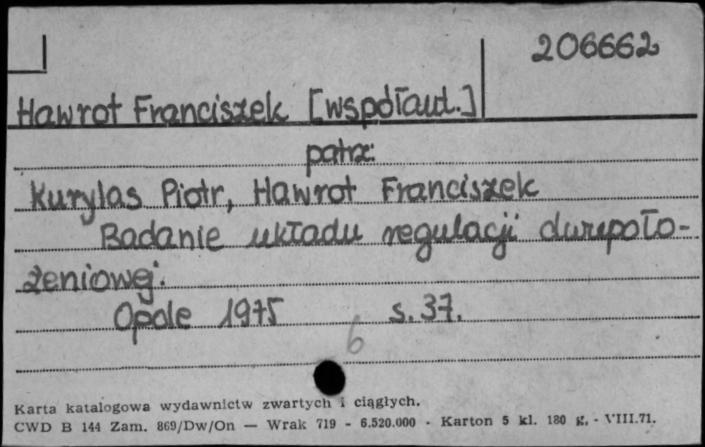 206662
Hawrot Franciszek [współaut.]
patrz:
Kurylas Piotr, Hawrot Franciszek
Badanie układu regulacji dwupoło-
żeniowej.
Opole 1975 s. 37.
6
Karta katalogowa wydawnictw zwartych i ciągłych.
CWD B 144 Zam. 869/Dw/On — Wrak 719 - 6.520.000 - Karton 5 kl. 180 g. - VIII.71.